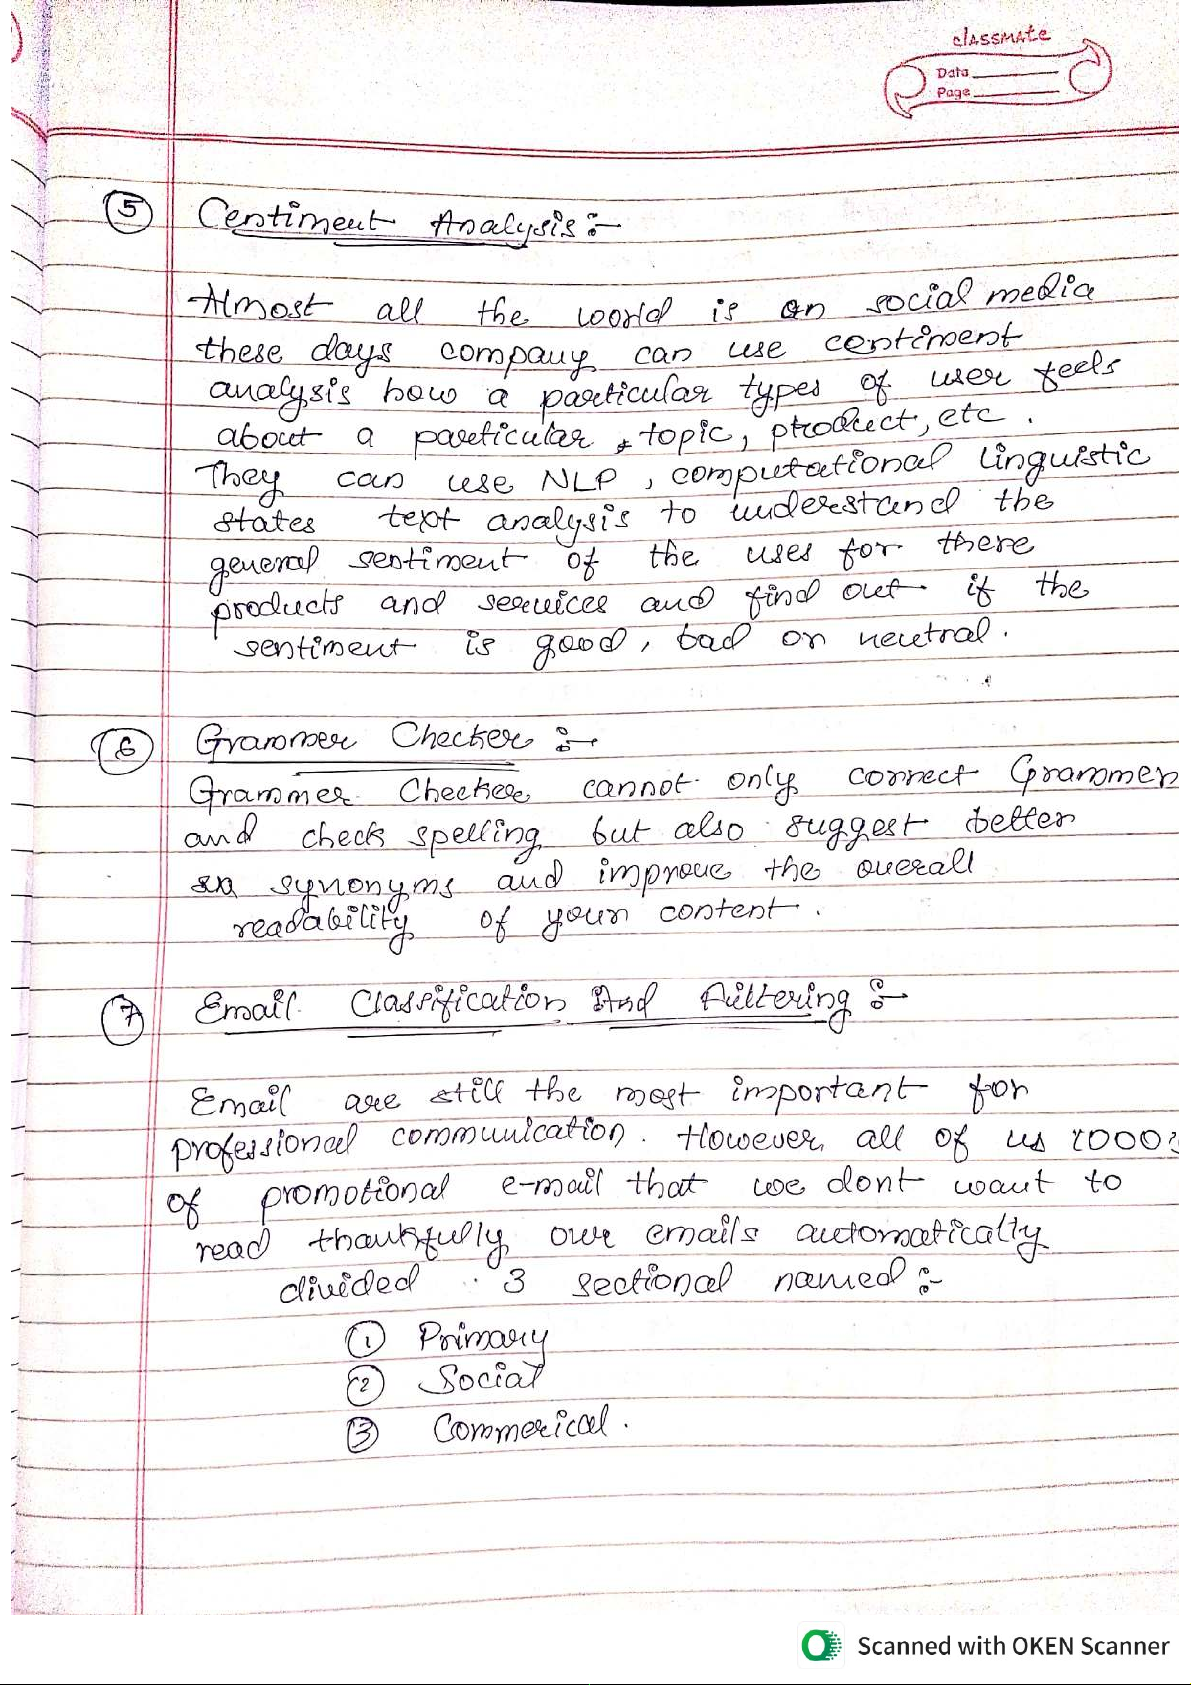 classmate
Date
Page
5 Centiment Analysis :-
Almost all the world is on social media
these days company can use centiment
analysis how a particular types of user feels
about a particular topic, product, etc.
They can use NLP, computational linguistic
states text analysis to understand the
general sentiment of the uses for there
products and services and find out if the
sentiment is good, bad or neutral.
6 Grammer Checker :-
Grammer Checker cannot only correct Grammer
and check spelling but also suggest better
synonyms and improve the overall
readability of your content.
7 Email Classification And Filtering :-
Email are still the most important for
professional communication. However, all of us 1000s
of promotional e-mail that we dont want to
read thankfully our emails automatically
divided 3 sectional named :-
1 Primary
2 Social
3 Commerical.
Scanned with OKEN Scanner